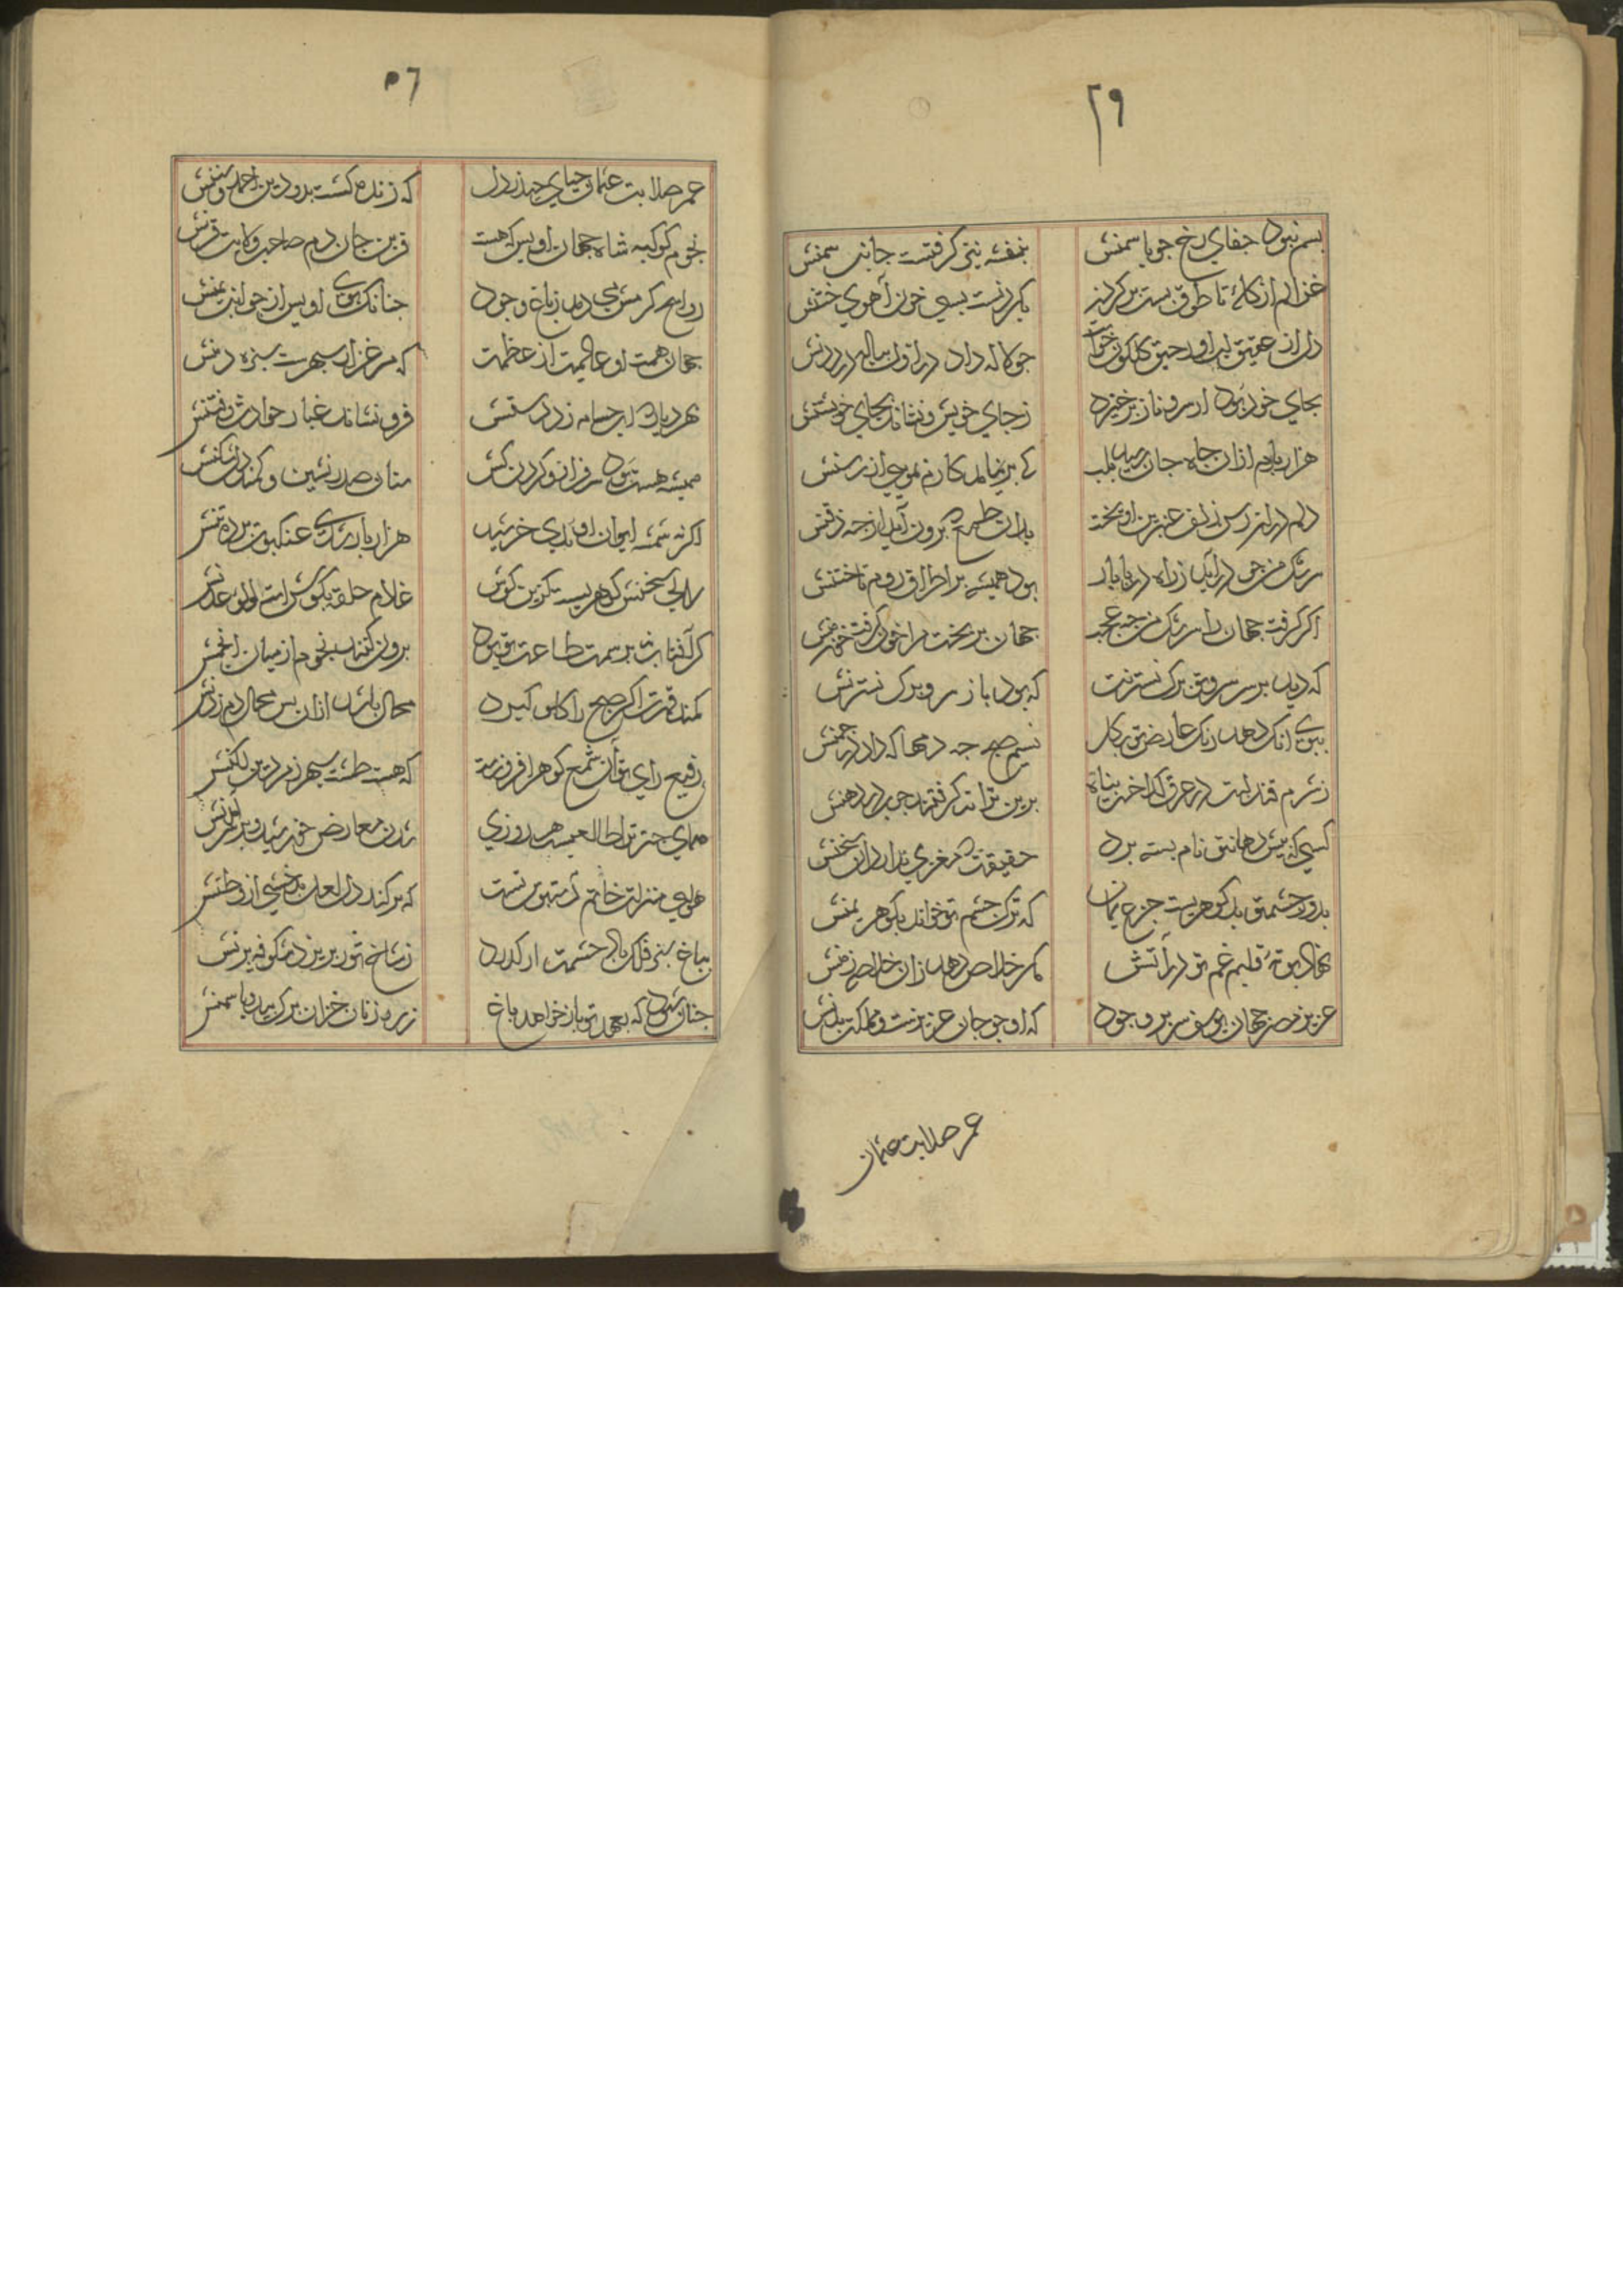 ٢٩
بسم نبود جفای رخ چو یاسمنش بنفشه نیز گرفتست جانب سمنش
غزالم از کله تا طوق بست بر کردن بکردنست بسی خون آهوی ختنش
دل از عقیق لب او رحیق کلکون خواست جو لاله داد در اول بیاله درد دنش
بجای خود بود ار سرو ناز برخیزد زجای خویش و نشاند بجای خویشتنش
هزار بارم ازان جاه جان رسید بلب که بر نیامد کارم بمویی از رسنش
دلم در از رسن زلف عنبرین اویخت بدان طمع که برون آید از جه ذقنش
سرشک من جو در آید ز راه دریا بار بود همیشه بر اطراف روم تاختنش
اکر کرفت جهان را سرشک من جه عجب جهان بریخت مرا خون کرفت خون منش
که دید بر سر سرو تو برک نسترنت که بود باز سر و برک نسترنش
ببوی انک دهد رنک عارض تو بکل نسیم صبح جه دمها که داد در جمنش
ز شرم قند لبت در عرق کداخت نبات برین تواند کرفتند جوب در دهنش
کسی که بیش دهانت نام بسته برد حقیقت که مغزی ندارد ان سخنش
بدور جشم تو بد کوهریست جزع یمان که ترک جشم تو خواند بکوهر یمنش
نهاد بوته قلبم غم تو در آتش مکر خلاص دهد زان خلاص زمنش
عزیز مصر جهان یوسف سریر وجود که او جو جان عزیزست و مملکت بدنش
عمر صلابت عثمان
٥٦
عمر صلابت عثمان حیای حیدر دل که زنده کشت بدو دین احمد و سننش
نجوم کوکبه شاه جهان اویس که هست قرین جان دم صاحب ولایت قرنش
روایح کرمش می دمد ز باغ وجود جنانک بوی اویس از جوانب یمنش
جهان همت او عالمیست از عظمت که مرغزار سبهرست سبزه دمنش
بهر دیار که ابر حسام زد رشتش فرو نشاند غبار حوادث و فتنش
همیشه هست بود سرفراز و کردن کش سنان صدر نشین و کمند دل شکنش
اکر نه شمسه ایوان او بدی خرشید هزار بار شدی عنکبوت برده تنش
درای سخنش کوهریست کزین کوش غلام حلقه بکوش است لولو عدنش
کر آفتاب نه بر سمت طاعت تو بود برون کنند نجوم از میان انجمنش
کمند قهرت اکر صبح را کلو کیرد محال باشد ازان بس مجال دم زدنش
رفیع رای تو آن شمع کوهر افروزست که هست طشت سبهر زمردین لکنش
همای جتر تو را طالعیست هر روزی شدن معارض خورشید و بر سر آمدنش
هوای منزلت خاتم تو شمس تست که بر کند دل لعل بدخشی از وطنش
بباغ سبز فلک باد حشمت ار کذرد ز شاخ ثور بریزد شکوفه برنش
جنان شود که بعهد تو باز خواهد باغ زر از زنان خزان برک بید و یاسمنش